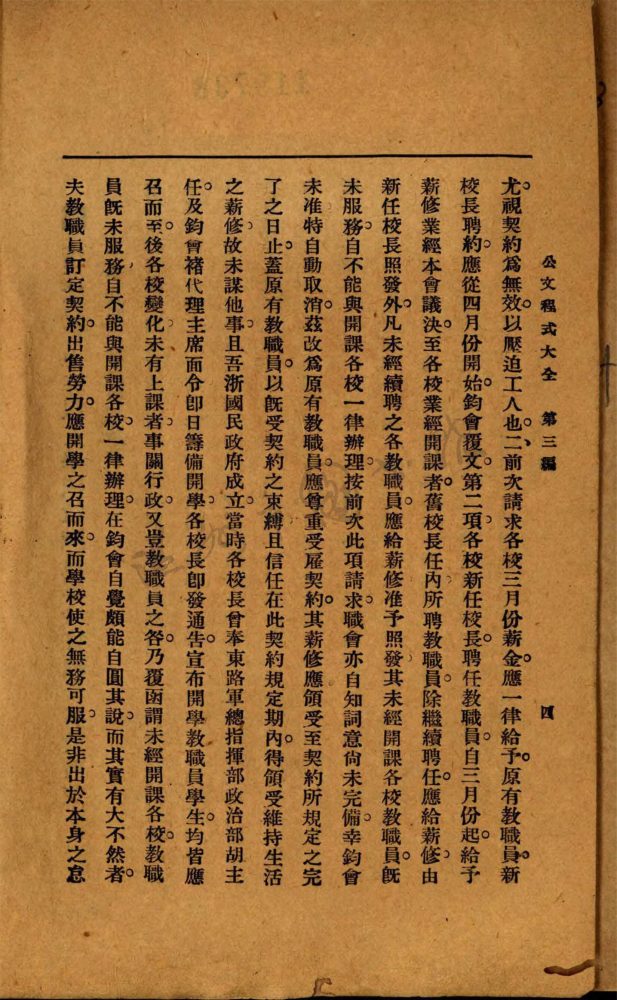 公文程式大全　第三編　四
尤視契約爲無效。以壓迫工人也。二、前次請求各校三月份薪金。應一律給予。原有教職員。新
校長聘約。應從四月份開始。鈞會覆文。第二項。各校新任校長。聘任教職員。自三月份起。給予
薪修。業經本會議決。至各校業經開課者。舊校長任內所聘教職員。除繼續聘任。應給薪修。由
新任校長照發外。凡未經續聘之各教職員。應給薪修。准予照發。其未經開課各校教職員。旣
未服務。自不能與開課各校一律辦理。按前次此項請求。職會亦自知詞意尙未完備。幸鈞會
未准。特自動取消。茲改爲原有教職員。應尊重受雇契約。其薪修應領受至契約所規定之完
了之日止。蓋原有教職員。以旣受契約之束縛。且信任在此契約規定期內。得領受維持生活
之薪修。故未謀他事。且吾浙國民政府成立。當時各校長曾奉東路軍總指揮部政治部胡主
任。及鈞會褚代理主席面令。卽日籌備開學。各校長卽發通告。宣布開學。教職員學生。均皆應
召而至。後各校變化。未有上課者。事關行政。又豈教職員之咎。乃覆函謂未經開課各校。教職
員旣未服務。自不能與開課各校。一律辦理。在鈞會自覺頗能自圓其說。而其實有大不然者。
夫教職員訂定契約。出售勞力。應開學之召而來。而學校使之無務可服。是非出於本身之怠